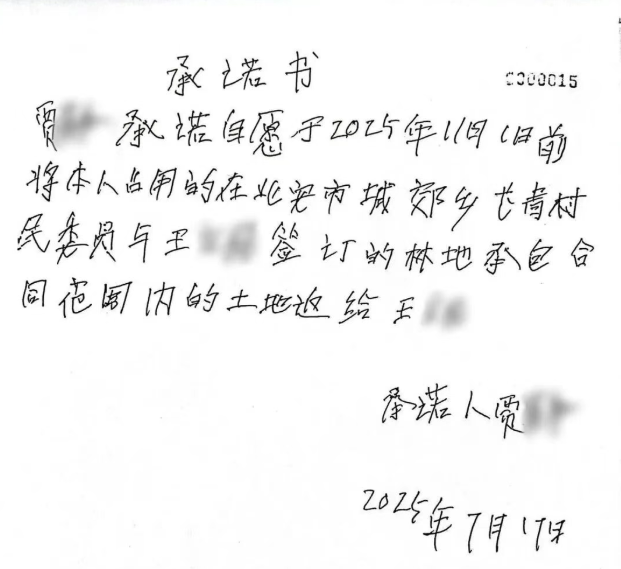 承诺书
0000015
贾 承诺自愿于2025年11月1日前
将本人占用的在北安市城郊乡长青村
民委员与王 签订的林地承包合
同范围内的土地返给王
承诺人贾
2025年7月17日